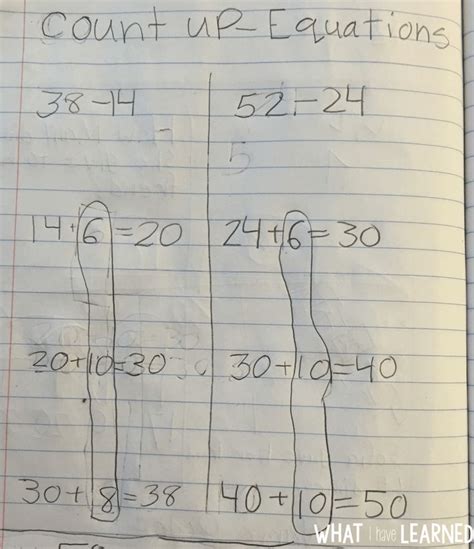 Count up-Equations
38-14
52-24
5
14+6=20
24+6=30
20+10=30
30+10=40
30+8=38
40+10=50
WHAT I have LEARNED